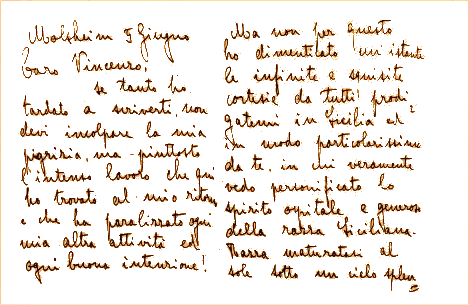 Molsheim 5 Giugno
Caro Vincenzo,
se tanto ho
tardato a scriverti, non
devi incolpare la mia
pigrizia, ma piuttosto
l'intenso lavoro che qui
ho trovato al mio ritorno
e che ha paralizzato ogni
mia altra attività ed
ogni buona intenzione!
Ma non per questo
ho dimenticato un istante
le infinite e squisite
cortesie da tutti prodi
gatemi in Sicilia ed
in modo particolarissimo
da te, in cui veramente
vedo personificato lo
spirito ospitale e generoso
della razza Siciliana.
Razza maturatasi al
sole sotto un cielo splen